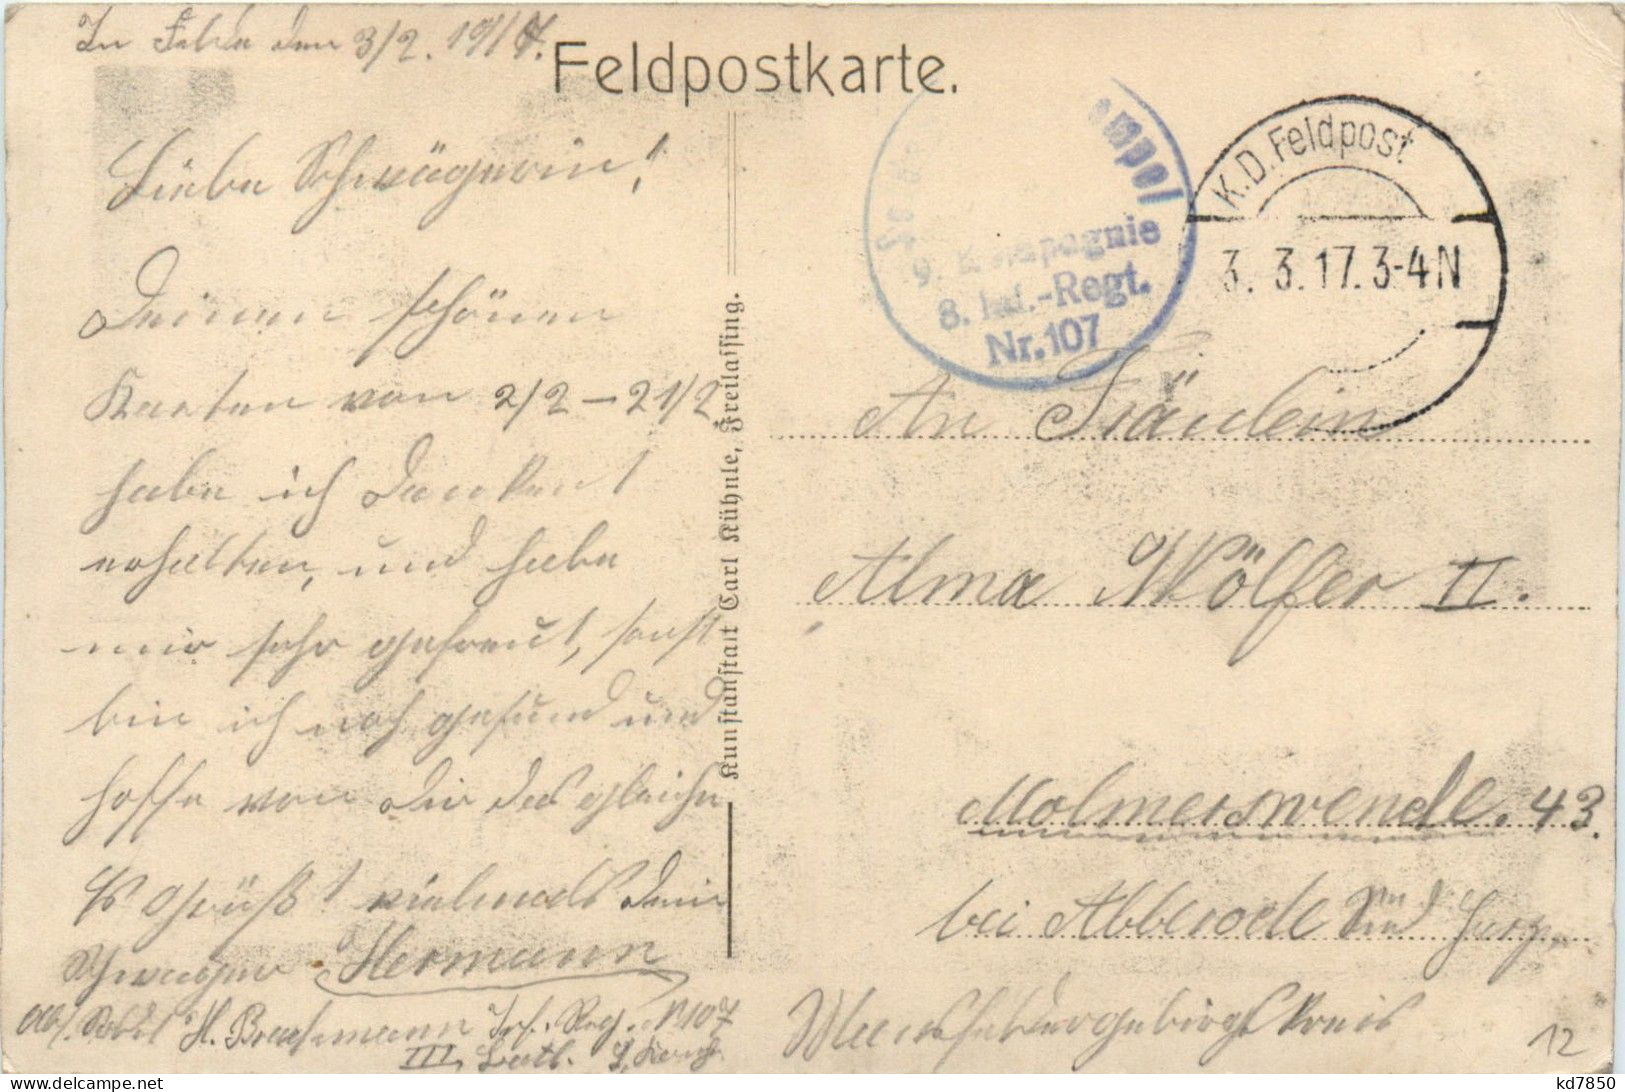 In Felde den 3/2. 1917.
Feldpostkarte.
Liebe Schwägerin!
Deinen schönen
Karten von 2/2 – 21/2
habe ich dankent
erhalten, und habe
mir sehr gefreut, sonst
bin ich noch gesund und
hoffe von dir das gleiche
Es Grüßt vielmals dein
Schwager Hermann
Abs. H. Inf. Reg. N107
III Batl.
Kunstanstalt Carl Kühnle, Freilassing.
9. Kompagnie
8. Inf.-Regt.
Nr. 107
K.D. Feldpost
3. 3. 17. 3-4N
An Fräulein
Alma Wölfer II.
Molmerswende. 43.
bei Abberode Süd Harz
Mansfeldergebirgskreis
12
kd7850